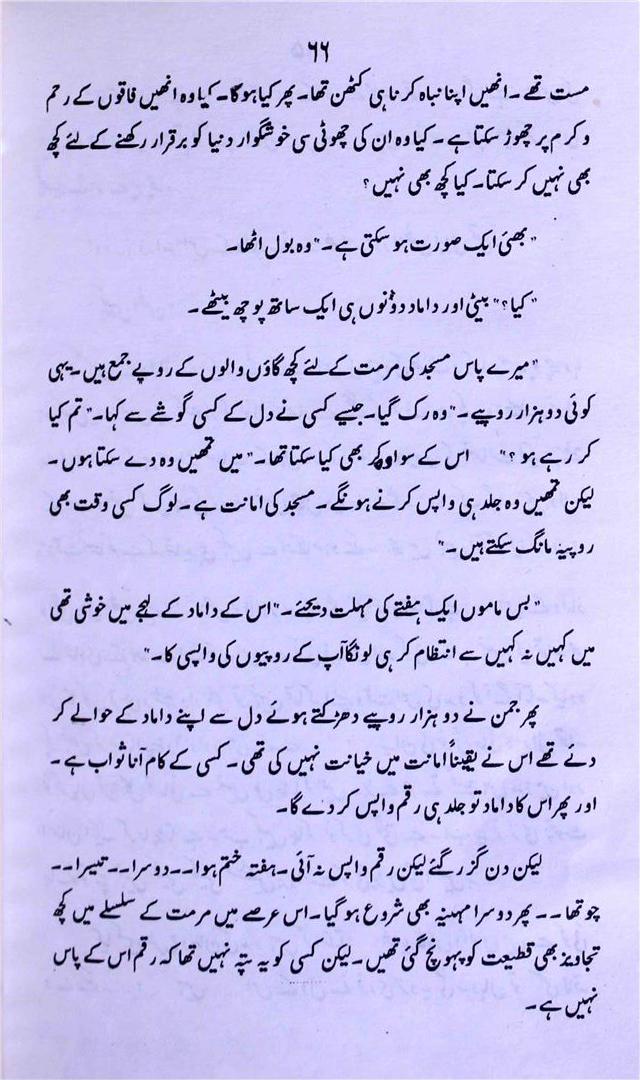 ۶۶
مست تھے۔ انھیں اپنا نباہ کرنا ہی کٹھن تھا۔ پھر کیا ہوگا۔ کیا وہ انھیں فاقوں کے رحم
و کرم پر چھوڑ سکتا ہے۔ کیا وہ ان کی چھوٹی سی خوشگوار دنیا کو برقرار رکھنے کے لئے کچھ
بھی نہیں کر سکتا۔ کیا کچھ بھی نہیں؟
"بھئی ایک صورت ہو سکتی ہے۔" وہ بول اٹھا۔
"کیا؟" بیٹی اور داماد دونوں ہی ایک ساتھ پوچھ بیٹھے۔
"میرے پاس مسجد کی مرمت کے لئے کچھ گاؤں والوں کے روپے جمع ہیں۔ یہی
کوئی دو ہزار روپیے۔" وہ رک گیا۔ جیسے کسی نے دل کے کسی گوشے سے کہا۔ "تم کیا
کر رہے ہو؟" اس کے سوا وہ کر بھی کیا سکتا تھا۔ "میں تمھیں وہ دے سکتا ہوں۔
لیکن تمھیں وہ جلد ہی واپس کرنے ہونگے۔ مسجد کی امانت ہے۔ لوگ کسی وقت بھی
روپیہ مانگ سکتے ہیں۔"
"بس ماموں ایک ہفتے کی مہلت دیجئے۔" اس کے داماد کے لہجے میں خوشی تھی
میں کہیں نہ کہیں سے انتظام کر ہی لونگا آپ کے روپیوں کی واپسی کا۔"
پھر جمن نے دو ہزار روپیے دھڑکتے ہوئے دل سے اپنے داماد کے حوالے کر
دئے تھے اس نے یقیناً امانت میں خیانت نہیں کی تھی۔ کسی کے کام آنا ثواب ہے۔
اور پھر اس کا داماد تو جلد ہی رقم واپس کر دے گا۔
لیکن دن گزر گئے لیکن رقم واپس نہ آئی۔ ہفتہ ختم ہوا۔۔ دوسرا۔۔ تیسرا۔۔
چوتھا۔۔ پھر دوسرا مہینہ بھی شروع ہو گیا۔ اس عرصے میں مرمت کے سلسلے میں کچھ
تجاویز بھی قطعیت کو پہونچ گئی تھیں۔ لیکن کسی کو یہ پتہ نہیں تھا کہ رقم اس کے پاس
نہیں ہے۔